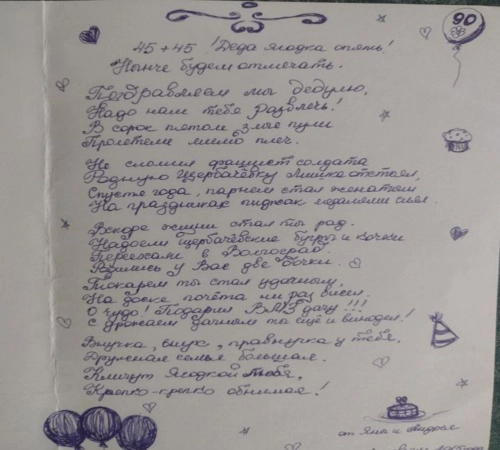 90
45+45! Деда ягодка опять!
Нынче будем отмечать.
Поздравляем мы дедулю,
Надо нам тебя развлечь!
В сорок пятом злые пули
Пролетели мимо плеч.
Не сломил фашист солдата
Родную Щербачёвку Мишка отстоял,
Спустя года, парнем стал женатым
На праздниках пиджак медалями сиял.
Вскоре жизни стал ты рад.
Надоели Щербачёвские бугры и кочки
Переехали в Волгоград,
Родились у Вас две дочки.
Токарем ты стал удачным,
На доске почёта ни раз висел.
О чудо! Подарил ВМЗ дачу!!!
С урожаем дачным ты ещё и винодел!
Внучка, внук, правнучка у тебя,
Дружная семья большая.
Кличут Ягодкой тебя,
Крепко-крепко обнимая!
от Яны и Андрея